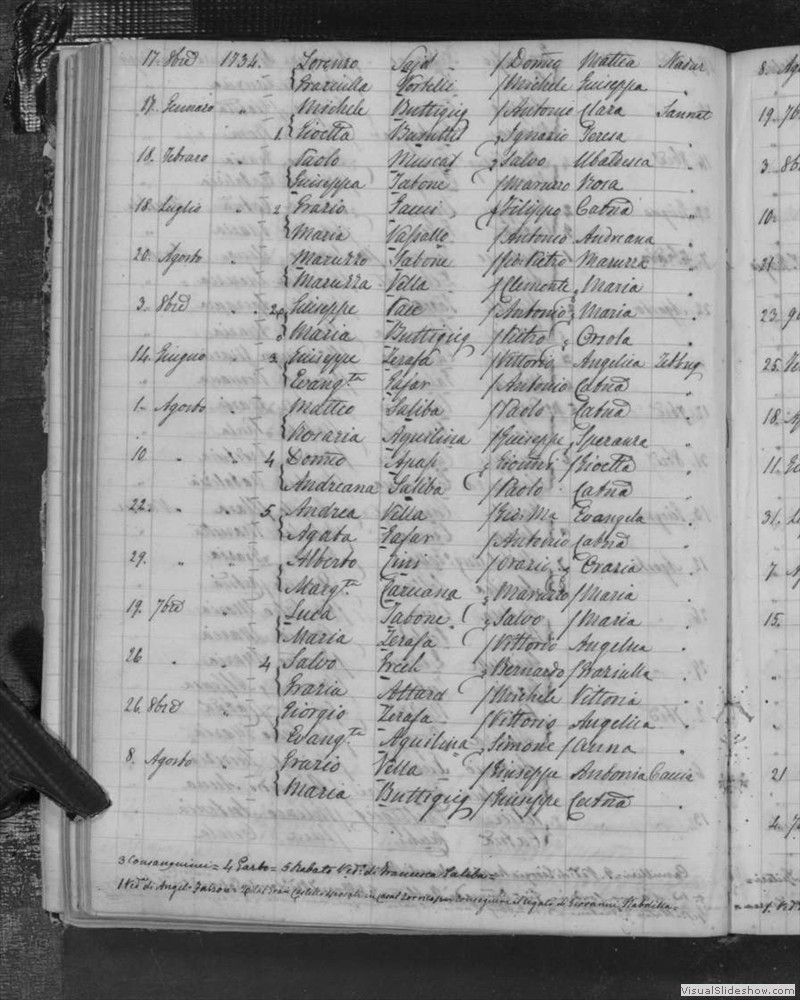 17. 8bre 1734. Lorenzo Said / Domco Mattea Nadur
Graziulla Portelli / Michele Giuseppa
17. Gennaro " Michele Buttigig / Antonio Clara Sannat
1. Gioetta Ignazio Teresa
18. Febraro Paolo Muscat Salvo Ubaldesca
Giuseppa Tabone / Maruzzo Rosa
18. Luglio " 2 Grazio Gauci Filippo Catna
Maria Vassallo / Antonio Andreana
20. Agosto Maruzzo Tabone Maruzza
Maruzza Vella / Clemente Maria
3. 8bre 2 Giuseppe / Antonio Maria
Maria Buttigig / Pietro Orsola
14. Giugno 3 Giuseppe Zerafa / Vittorio Angelica Zebbug
Evangta Safar / Antonio Catna
1. Agosto Matteo Saliba / Paolo Catna
Rosaria Aquilina / Giuseppe Speranza
10 " 4 Domco Apap Gioetta
Andreana Saliba / Paolo Catna
22. 5. Andrea Vella / Gio: Ma Evangela
Agata Safar / Antonio Catna
29. " Alberto Cini / Orazio Grazia
Margta Caruana Maruzzo / Maria
19. 7bre Luca Tabone Salvo / Maria
Maria Zerafa / Vittorio Angelica
26 " 4 Salvo Grech Bernardo / Graziulla
Grazia Attard / Michele Vittoria
26. 8bre " Giorgio Zerafa / Vittorio Angelica
Evangta Aquilina Simone / Anna
8. Agosto Grazio Vella / Giuseppe Antonia Caccia
Maria Buttigig / Giuseppe Catna
3 Consanguinei = 4 Garbo = 5 Rabato Ved. di Francesco Saliba =
1 Ved. di Angelo
8. Ag
19. 7b
3. 8b
10.
21.
23. 9b
25. Ve
18. A
11. Ge
31. L
7 A
15.
21
4. 7
VisualSlideshow.com